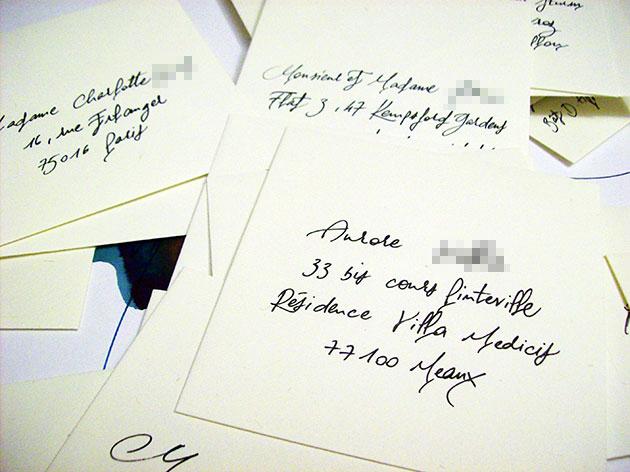 Madame Charlotte
16, rue Erlanger
75016 Paris
Monsieur et Madame
Flat 3, 47 Kempsford Gardens
Aurore
33 bis cours Pinteville
Résidence Villa Medicis
77100 Meaux